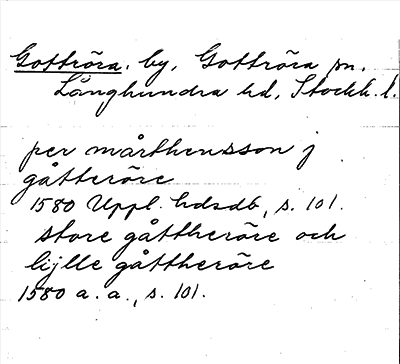 Gottröra. by, Gottröra sn.
Långhundra hd, Stockh. l.
per mårthensson j
gåtteröre
1580 Uppl. hdsdb, s. 101.
store gåttheröre och
lijlle gåttheröre
1580 a. a., s. 101.